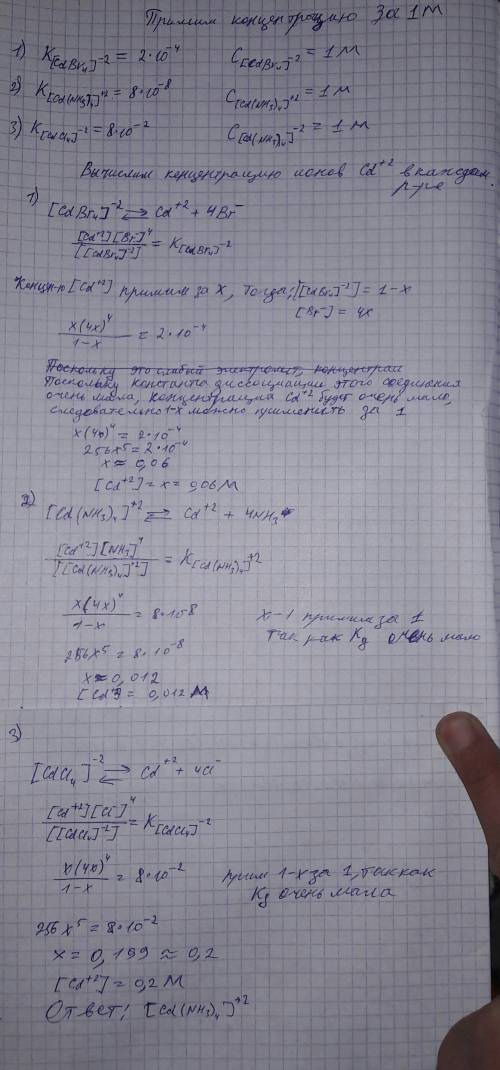 Примим концентрацию за 1 м
1) K[CdBr₄]⁻² = 2·10⁻⁴ C[CdBr₄]⁻² = 1 м
2) K[Cd(NH₃)₄]⁺² = 8·10⁻⁸ C[Cd(NH₃)₄]⁺² = 1 м
3) K[CdCl₄]⁻² = 8·10⁻² C[Cd(NH₃)₄]⁻² = 1 м
Вычислим концентрацию ионов Cd⁺² в каждом
р-ре
1) [CdBr₄]⁻² ⇄ Cd⁺² + 4Br⁻
[Cd⁺²][Br⁻]⁴ / [[CdBr₄]⁻²] = K[CdBr₄]⁻²
Концн-ю [Cd⁺²] примим за x, тогда; [[CdBr₄]⁻²] = 1-x
[Br⁻] = 4x
x(4x)⁴ / 1-x = 2·10⁻⁴
Поскольку это слабый электролит, концентрац
Поскольку константа диссоциации этого соединения
очень мала, концентрация Cd⁺² будет очень мала,
следовательно 1-x можно применить за 1
x(4x)⁴ = 2·10⁻⁴
256x⁵ = 2·10⁻⁴
x ≈ 0,06
[Cd⁺²] = x = 0,06 М
2) [Cd(NH₃)₄]⁺² ⇄ Cd⁺² + 4NH₃
[Cd⁺²][NH₃]⁴ / [[Cd(NH₃)₄]⁺²] = K[Cd(NH₃)₄]⁺²
x(4x)⁴ / 1-x = 8·10⁻⁸ x-1 примим за 1
так как Kд очень мало
256x⁵ = 8·10⁻⁸
x ≈ 0,012
[Cd⁺²] = 0,012 М
3)
[CdCl₄]⁻² ⇄ Cd⁺² + 4Cl⁻
[Cd⁺²][Cl⁻]⁴ / [[CdCl₄]⁻²] = K[CdCl₄]⁻²
x(4x)⁴ / 1-x = 8·10⁻² прим 1-x за 1, так как
Kд очень мала
256x⁵ = 8·10⁻²
x = 0,199 ≈ 0,2
[Cd⁺²] = 0,2 М
Ответ: [Cd(NH₃)₄]⁺²